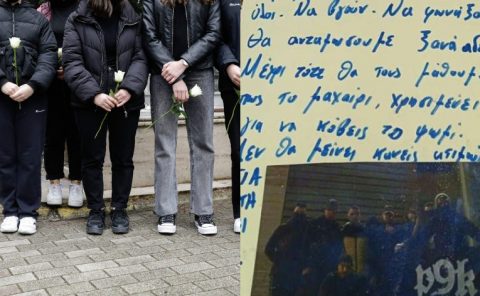 όλοι. Να βγουν. Να φωνάξο
Θα ανταμώσουμε ξανά αδ
Μέχρι τότε θα τους μάθουμ
πως το μαχαίρι, χρησιμεύει
για να κόβεις το ψωμί.
Δεν θα μείνει κανείς
ΓΙΑ
ΤΑ
p9k